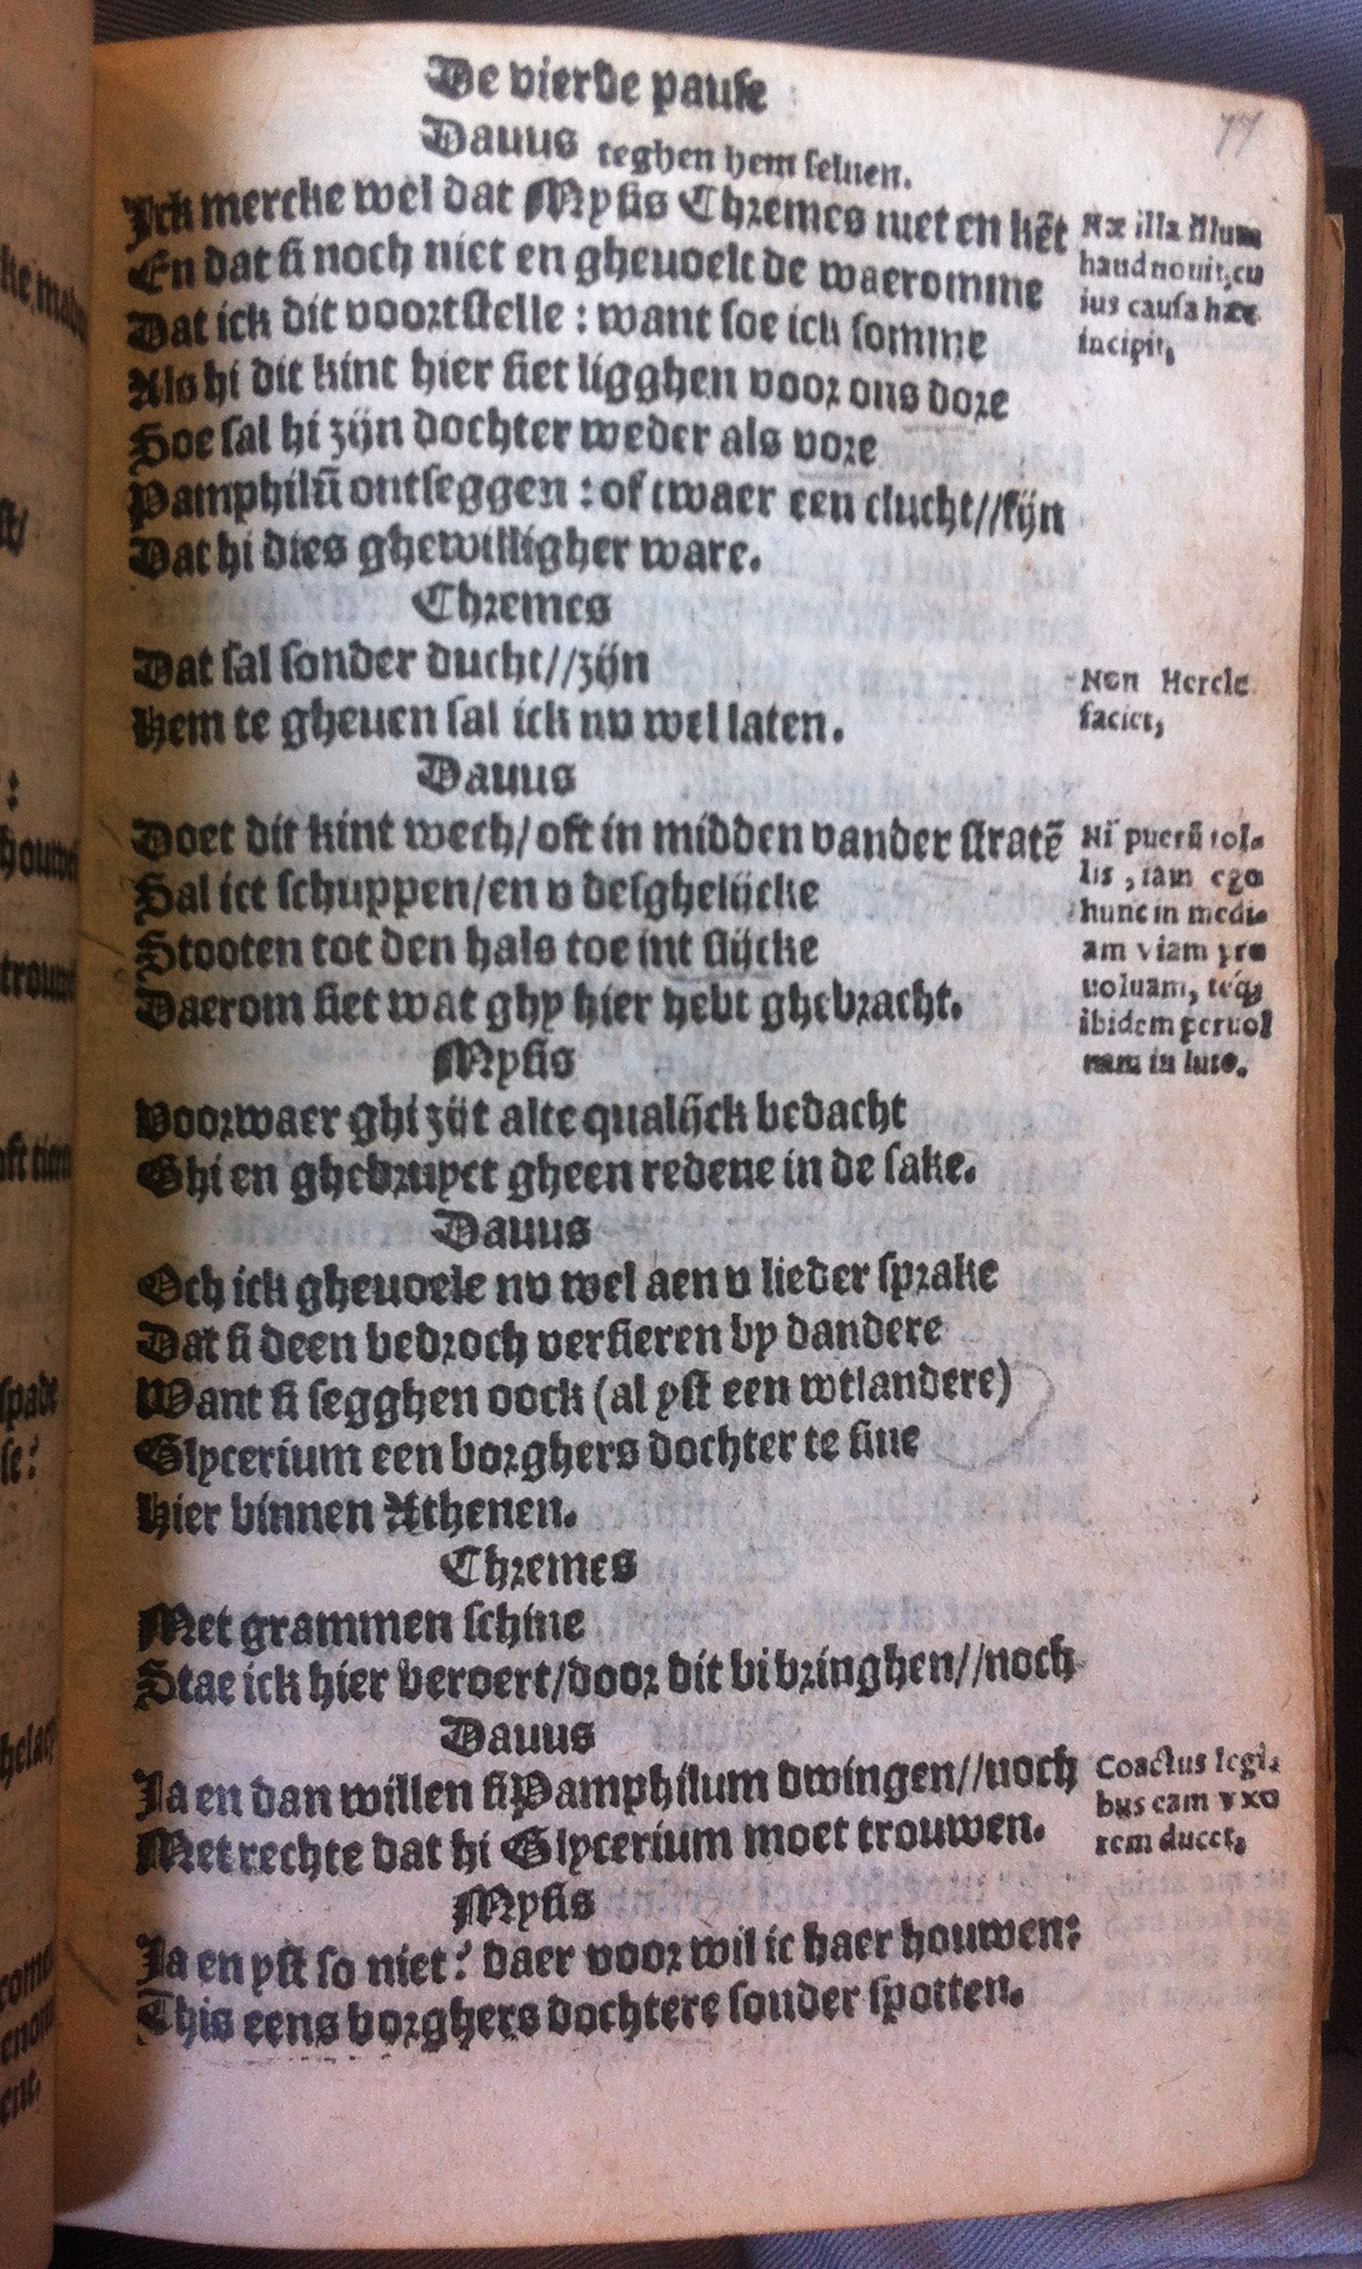 De vierde pause
77
Dauus teghen hem seluen.
Ick mercke wel dat Mysis Chremes niet en kẽt
En dat si noch niet en gheuoelt de waeromme
Dat ick dit voortstelle : want soe ick somme
Als hi dit kint hier siet ligghen voor ons dore
Hoe sal hi zijn dochter weder als vore
Pamphilũ ontseggen : of twaer een clucht//fijn
Dat hi dies ghewilligher ware.
Næ illa illum
haud nouit, cu
ius causa hæc
incipit,
Chremes
Dat sal sonder ducht//zijn
Hem te gheuen sal ick nv wel laten.
Non Hercle
faciet,
Dauus
Doet dit kint wech/ oft in midden vander stratẽ
Sal ict schuppen/en v desghelijcke
Stooten tot den hals toe int slijcke
Daerom siet wat ghy hier hebt ghebracht.
Ni puerũ tol-
lis, iam ego
hunc in medi-
am viam pro
uoluam, teq;
ibidem peruol
uam in luto.
Mysis
Voorwaer ghi zijt alte qualijck bedacht
Ghi en ghebruyct gheen redene in de sake.
Dauus
Och ick gheuoele nv wel aen v lieder sprake
Dat si deen bedroch versieren by dandere
Want si segghen oock (al yst een wtlandere)
Glycerium een borghers dochter te sine
Hier binnen Athenen.
Chremes
Met grammen schine
Stae ick hier beroert/door dit bibringhen//noch
Dauus
Ja en dan willen si Pamphilum dwingen//noch
Met rechte dat hi Glycerium moet trouwen.
Coactus legi-
bus eam vxo
rem ducet,
Mysis
Ja en yst so niet? daer voor wil ic haer houwen:
This eens borghers dochtere sonder spotten.